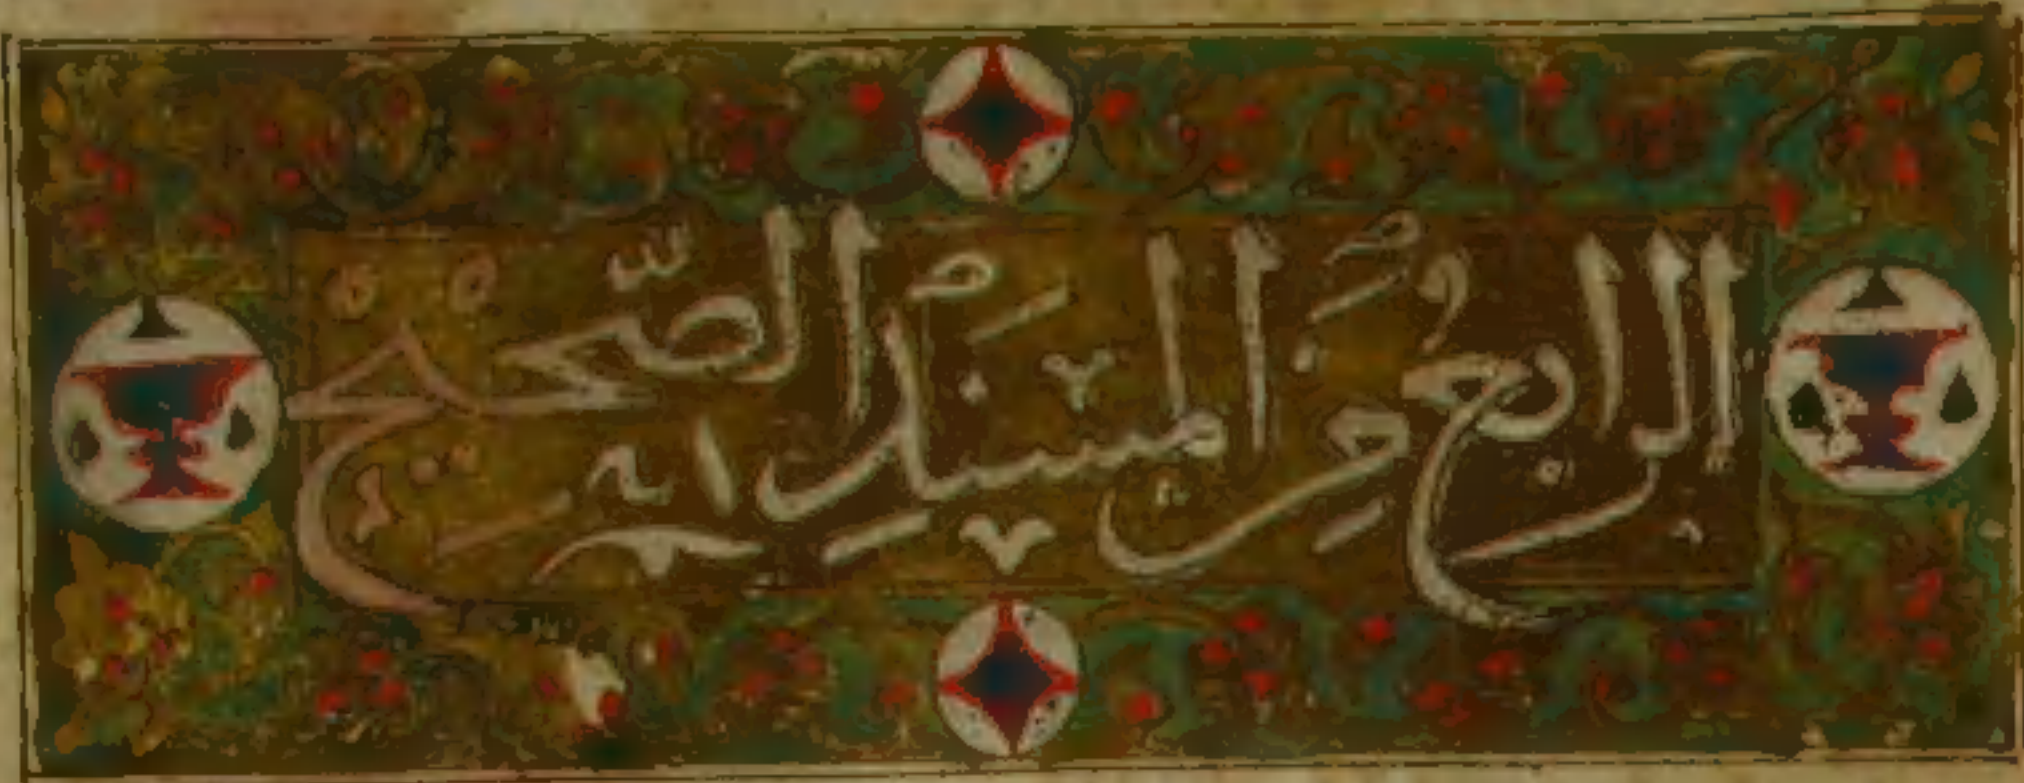 الرَّابِعُ مِنَ الْمُسْنَدِ الصَّحِيحِ